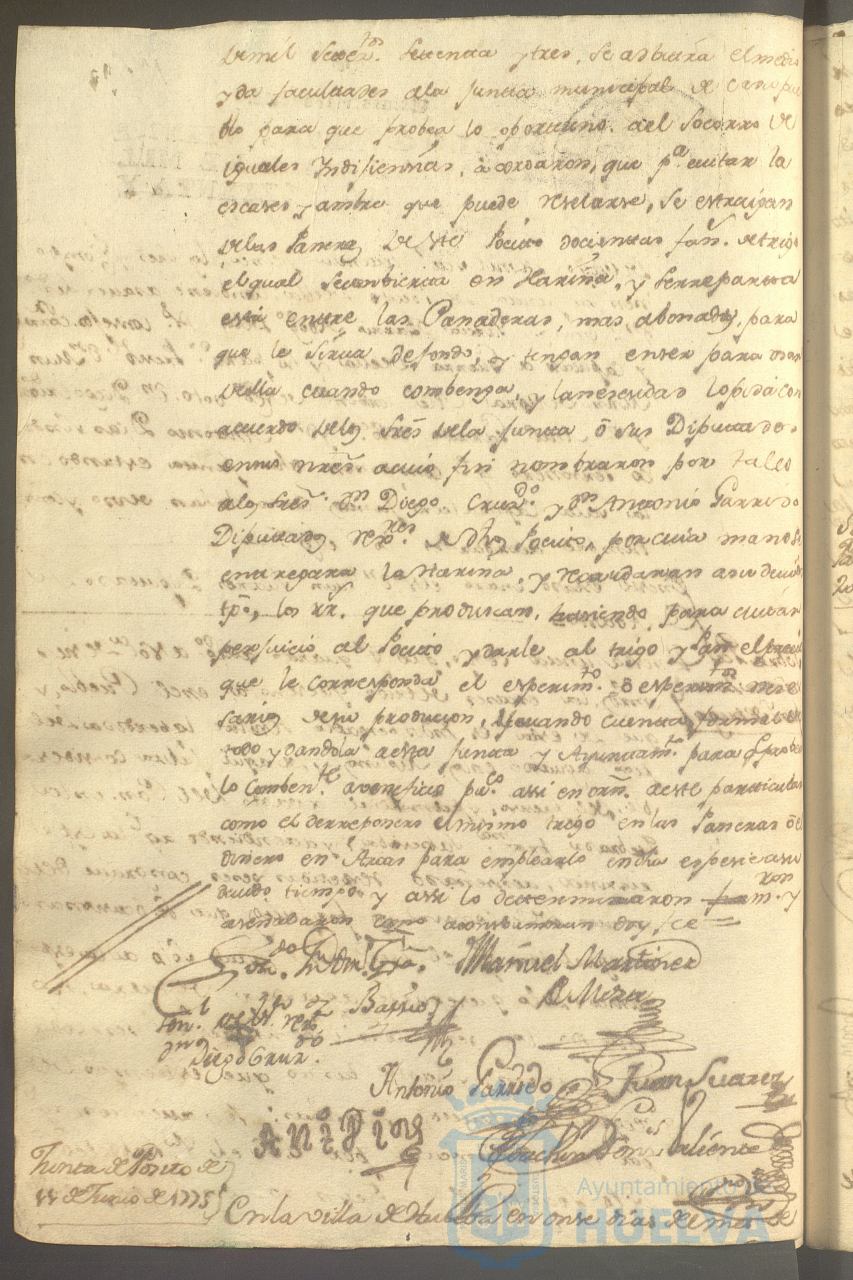 de mil Setec.tos Setenta y tres, se adbitra el medio
y da facultades a la Junta municipal de cada pue
blo para que probea lo oportuno del Socorro de
iguales Yndisiencias, acordaron, que p.a evitar la
escases y ambre que puede reselarse, se estraigan
de las Paneras de este Posito docientas fan.s de trigo
el qual se combierta en Harina, y se reparta
esta entre las Panaderas, mas abonadas, para
que le sirva de fondo, y tengan enser para
cuando combenga, y la
acuerdo de los Sres de la Junta ô sus Diputados
a cuio fin nombraron por tales
a los Sres. Dn Diego Cruz.do y Dn Antonio Garrido
Diputados, de dho Posito, por cuia mano se
entregara la Harina, y recaudaran a su devido
tpo, los rr. que produscan, haciendo para evitar
perjuicio al Posito y darle al trigo y Pan el precio
que le corresponda el esperim.to ô esperim.tos nese
sarios de su producion, llevando cuenta formal de
todo y dandola a esta Junta y Ayuntam.to para q probea
lo Comben.te a veneficio pu.co assi en orn. a este particular
como el de reponers el mismo trigo en las Paneras ô el
dinero en Arcas para emplearlo en dha espesie a su
devido tiempo y assi lo determinaron y
doy fee =
Manuel Martinez
Barrio y de Mora
Diego Cruz.do
Antonio Garrido Juan Suarez
Ante Mi
Joachin Valiente
Junta de Posito de
11 de Junio de 1775
En la villa de Huelva en onse dias de
Ayuntamiento de
HUELVA